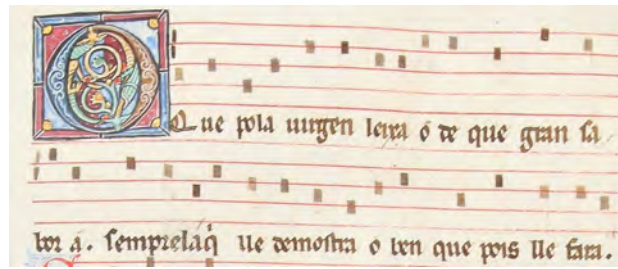 O Que pola uirgen leixa o de que gran sa
bor á. sempre laq̇ lle demostra o ben que pois lle fara.